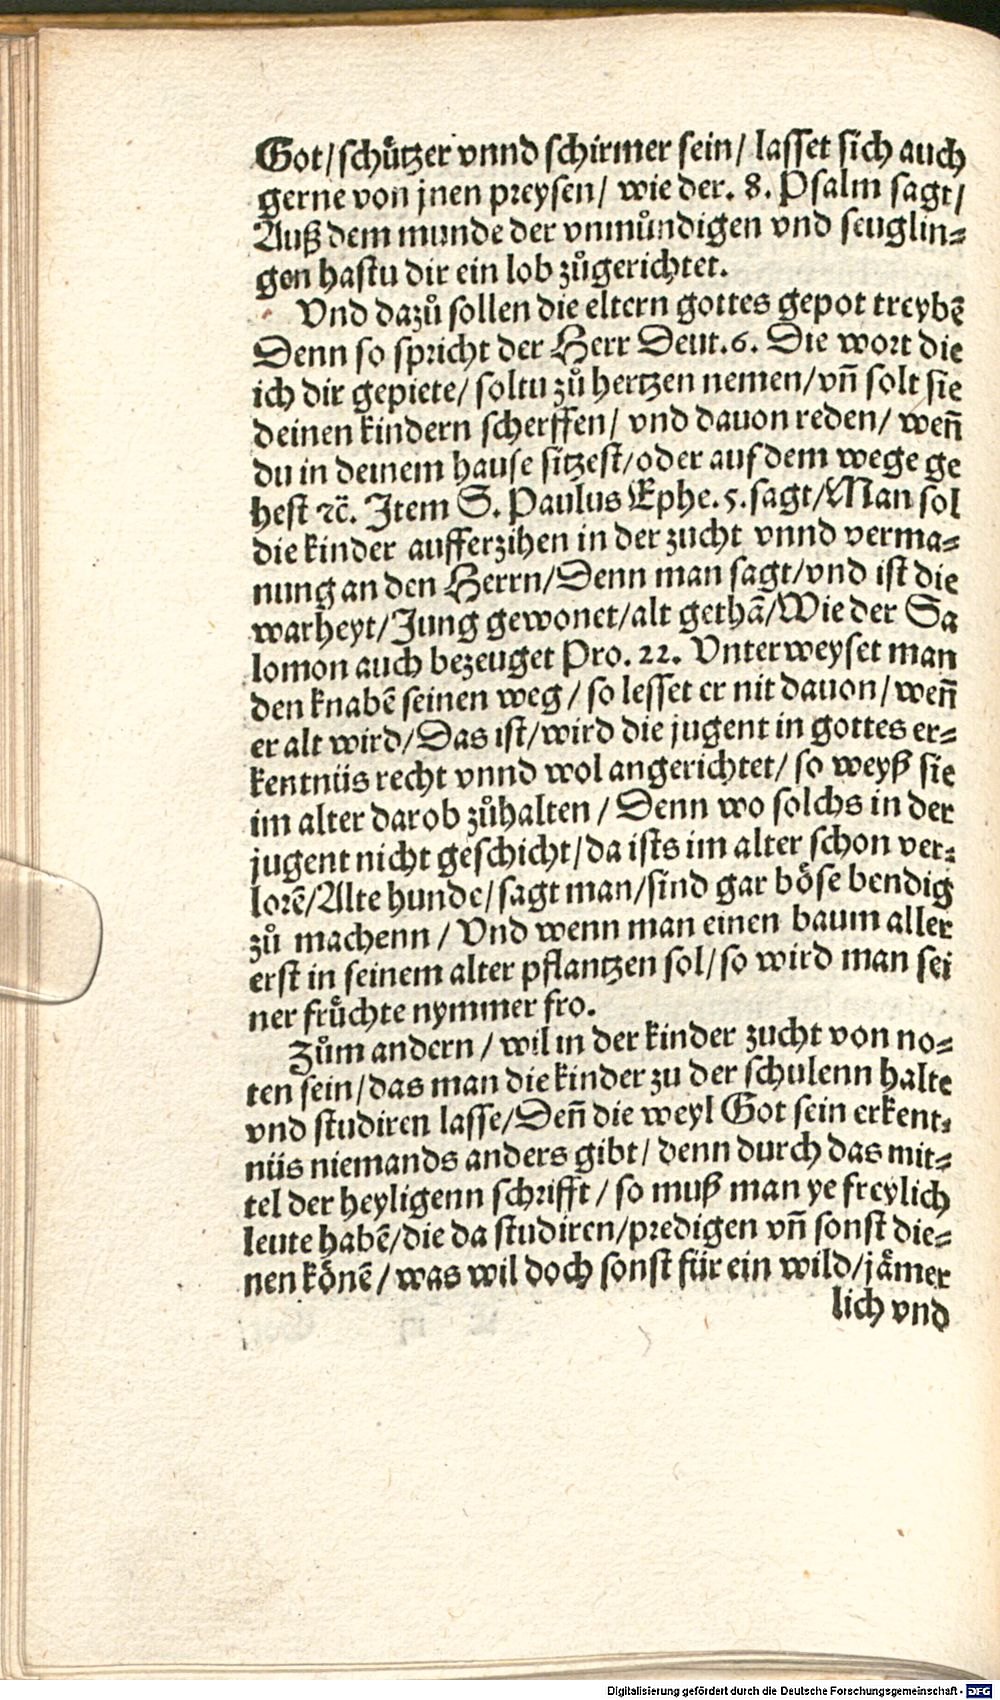 Got/schützer vnnd schirmer sein/ lasset sich auch
gerne von jnen preysen/ wie der. 8. Psalm sagt/
Auß dem munde der vnmündigen vnd seuglin=
gen hastu dir ein lob zůgerichtet.
Vnd dazů sollen die eltern gottes gepot treybē
Denn so spricht der Herr Deut.6. Die wort die
ich dir gepiete/ soltu zů hertzen nemen/vñ solt sie
deinen kindern scherffen/ vnd dauon reden/ weñ
du in deinem hause sitzest/oder auf dem wege ge
hest ꝛc̃. Item S. Paulus Ephe.5.sagt/Man sol
die kinder aufferzihen in der zucht vnnd verma=
nung an den Herrn/Denn man sagt/vnd ist die
warheyt/Jung gewonet/alt gethā/Wie der Sa
lomon auch bezeuget Pro. 22. Vnterweyset man
den knabē seinen weg/ so lesset er nit dauon/weñ
er alt wird/Das ist/wird die jugent in gottes er=
kentnüs recht vnnd wol angerichtet/ so weyß sie
im alter darob zůhalten / Denn wo solchs in der
jugent nicht geschicht/da ists im alter schon ver=
lorē/Alte hunde/sagt man/sind gar böse bendig
zů machenn / Vnd wenn man einen baum aller
erst in seinem alter pflantzen sol/so wird man sei
ner früchte nymmer fro.
Zům andern / wil in der kinder zucht von no=
ten sein/das man die kinder zu der schulenn halte
vnd studiren lasse/Deñ die weyl Got sein erkent=
nüs niemands anders gibt/ denn durch das mit=
tel der heyligenn schrifft / so muß man ye freylich
leute habē/die da studiren/predigen vñ sonst die=
nen könē/ was wil doch sonst für ein wild/jämer
lich vnd
Digitalisierung gefördert durch die Deutsche Forschungsgemeinschaft - DFG